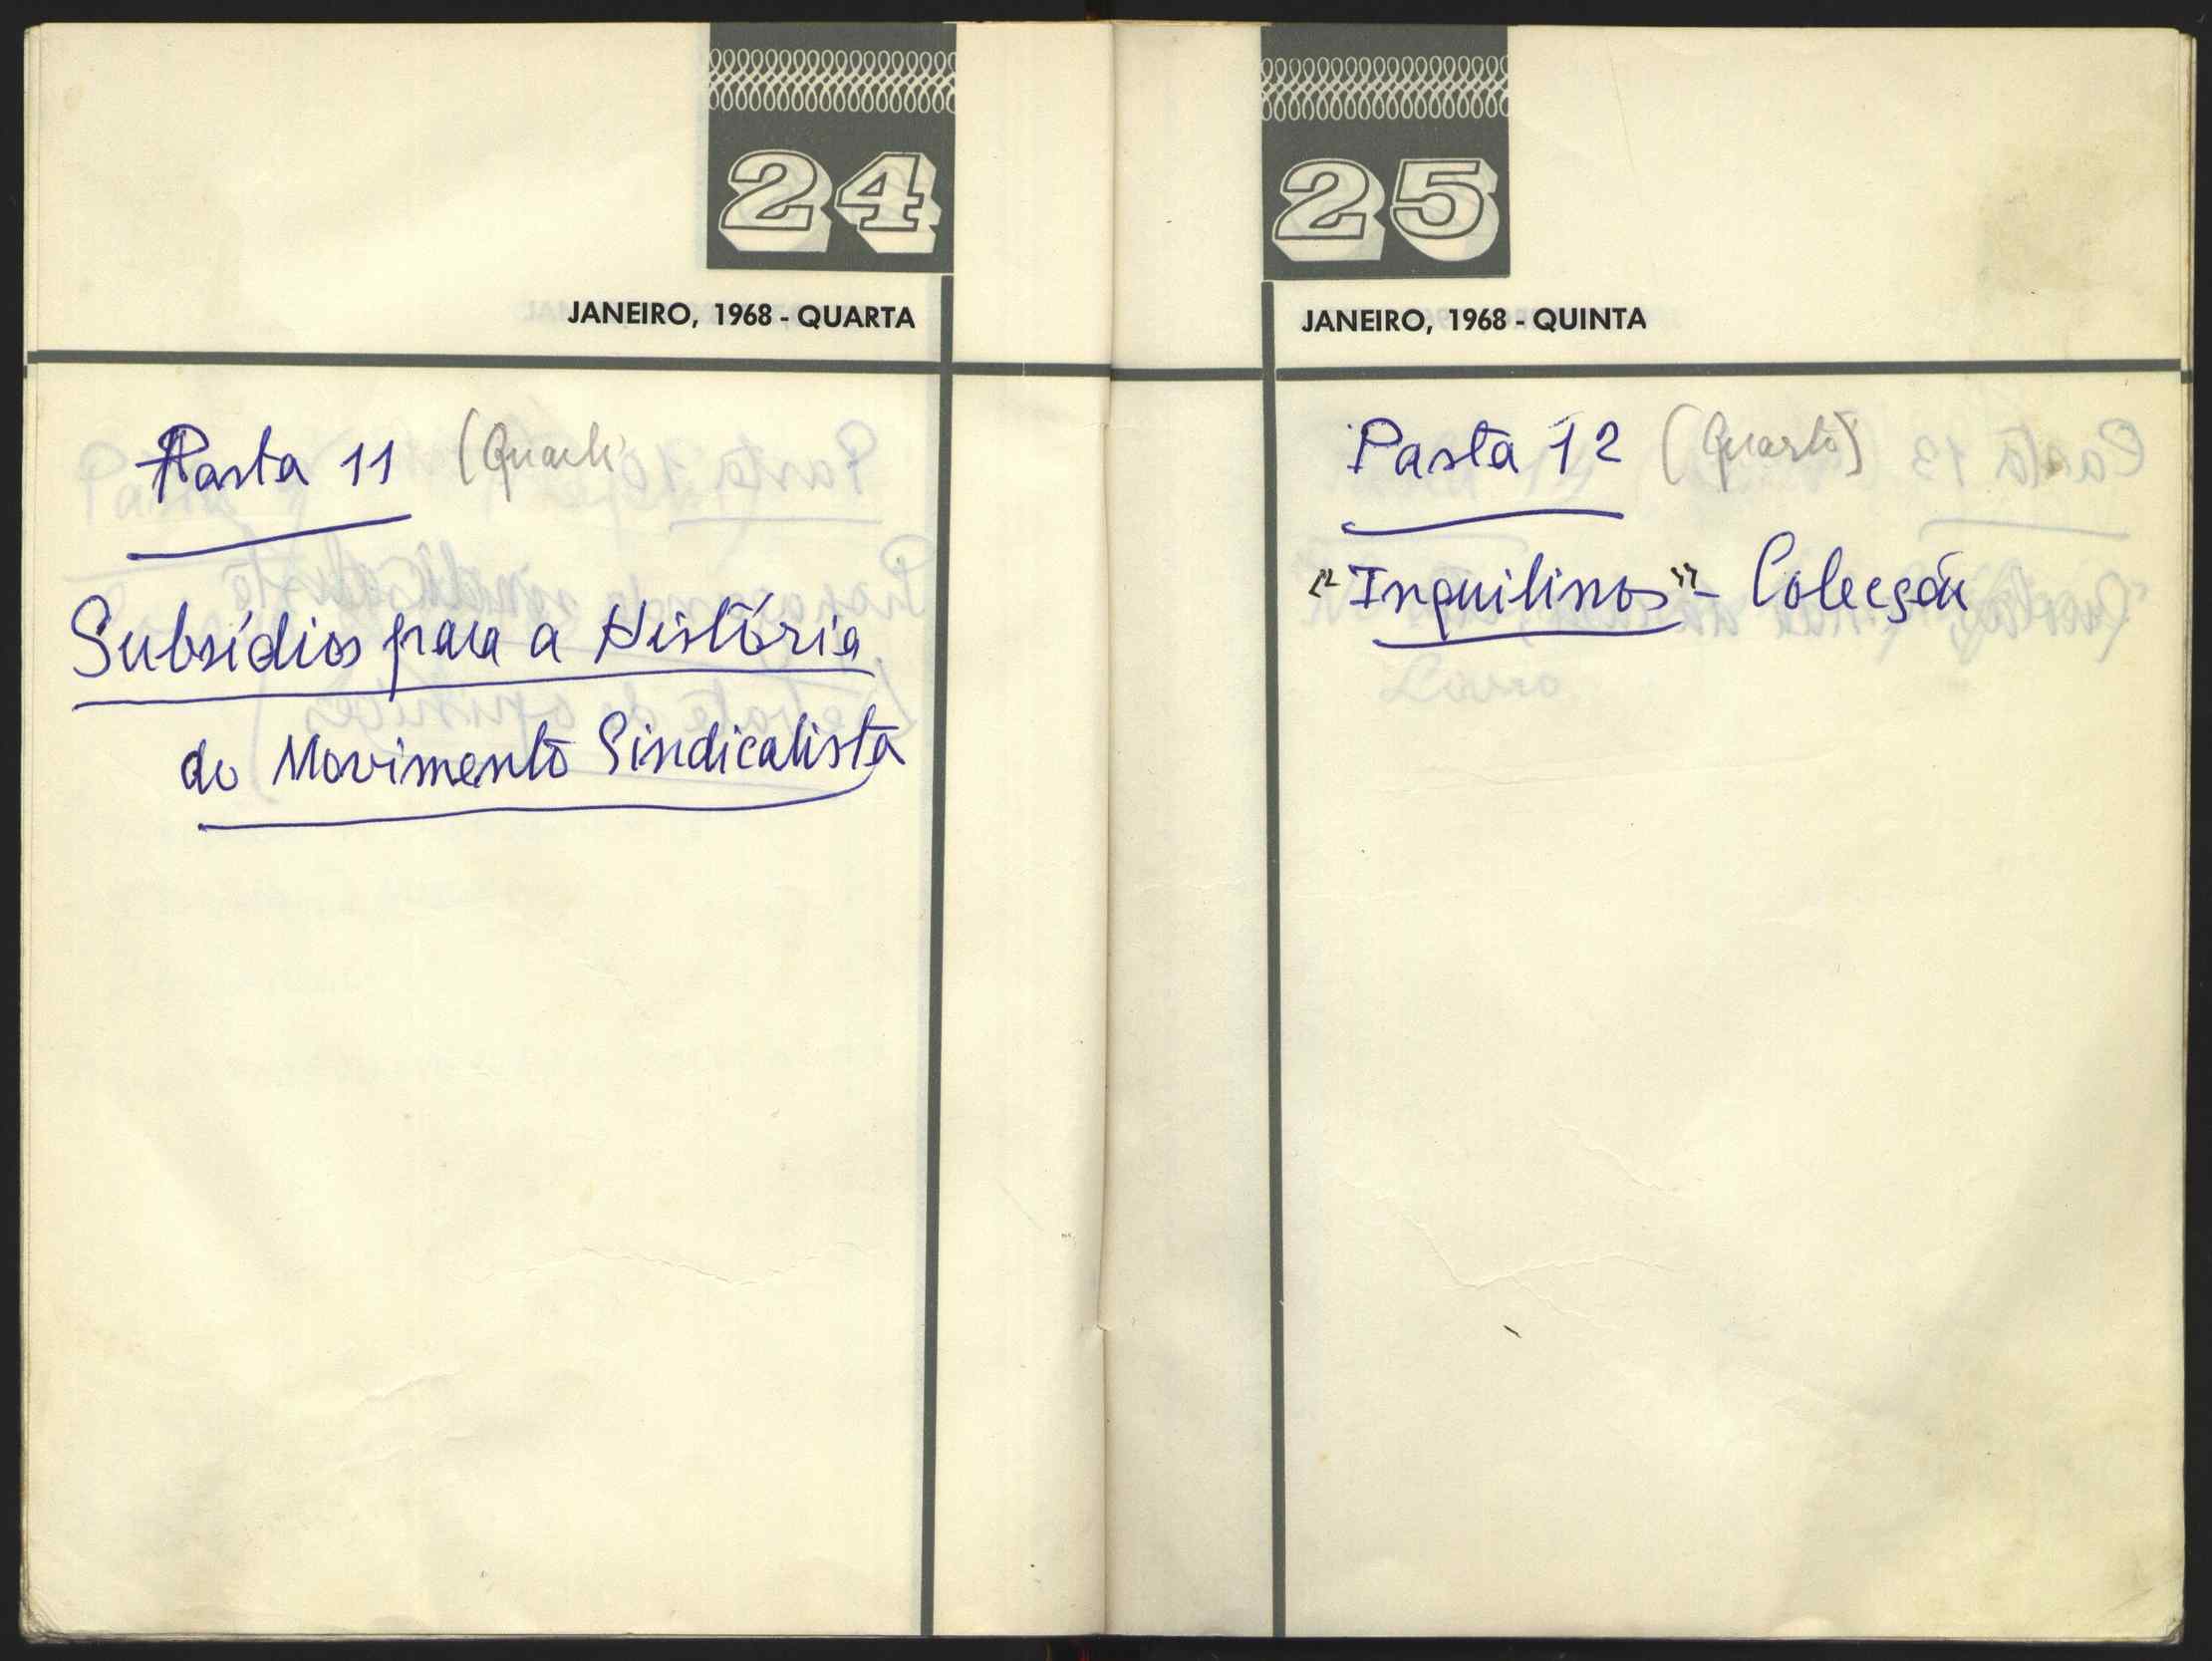 24
JANEIRO, 1968 - QUARTA
Pasta 11 (Quarto
Subsídios para a História
do Movimento Sindicalista
25
JANEIRO, 1968 - QUINTA
Pasta 12 (Quarto)
"Inquilinos" - Colecção